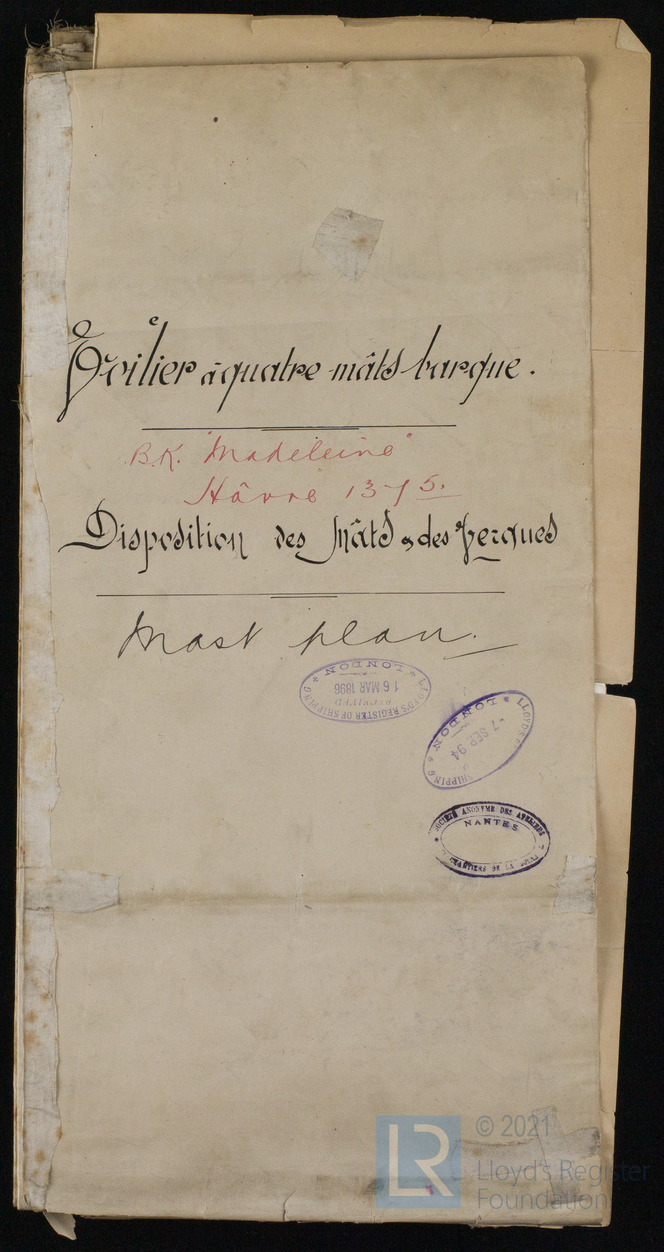 Voilier à quatre mâts barque.
B.K. "Madeleine"
Hâvre 1375.
Disposition des Mâts & des Vergues
Mast plan.
LLOYD'S REGISTER OF SHIPPING
RECEIVED
16 MAR 1896
* LONDON *
LLOYD'S
SHIPPING
-7 SEP 94
* LONDON *
SOCIÉTÉ ANONYME DES ATELIERS
NANTES
CHANTIERS DE LA
LR
© 2021
Lloyd's Register
Foundation